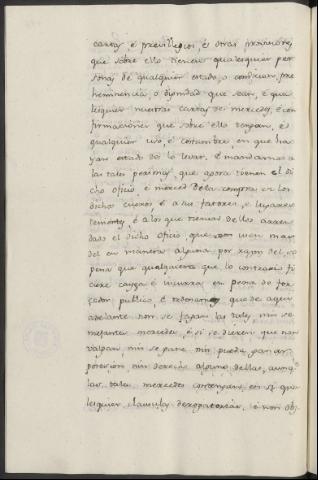 cartas, é previllegios, é otras provisiones
que sobre ello tienen qualesquier per
sonas de qualquier estado, o condicion, pre
heminencia, o dignidad que sean, é qua
lesquier nuestras cartas de mercedes, é con
firmaciones que sobre ello tengan, é
qualquier uso, é costumbre, en que ha
yan estado de lo levar. E mandamos a
las tales personas que agora tienen el di
cho oficio, é merced de la compra en los
dichos cueros é a sus fatores, é lugares
tenientes, é a los que tienen de ellos arren
dado el dicho oficio que non usen mas
del en manera alguna por razon del, so
pena que qualquiera que lo contrario fi
ciere caya é incurra en pena de for
zador publico, é ordenamos que de aqui
adelante non se fagan las tales, nin se
mejantes mercedes, é si se dieren que non
valgan, nin se gane nin pueda ganar
posesion, nin derecho alguno dellas, aunq.
las tales mercedes contengan en si qua
lesquier clausulas derogatorias, é non obs